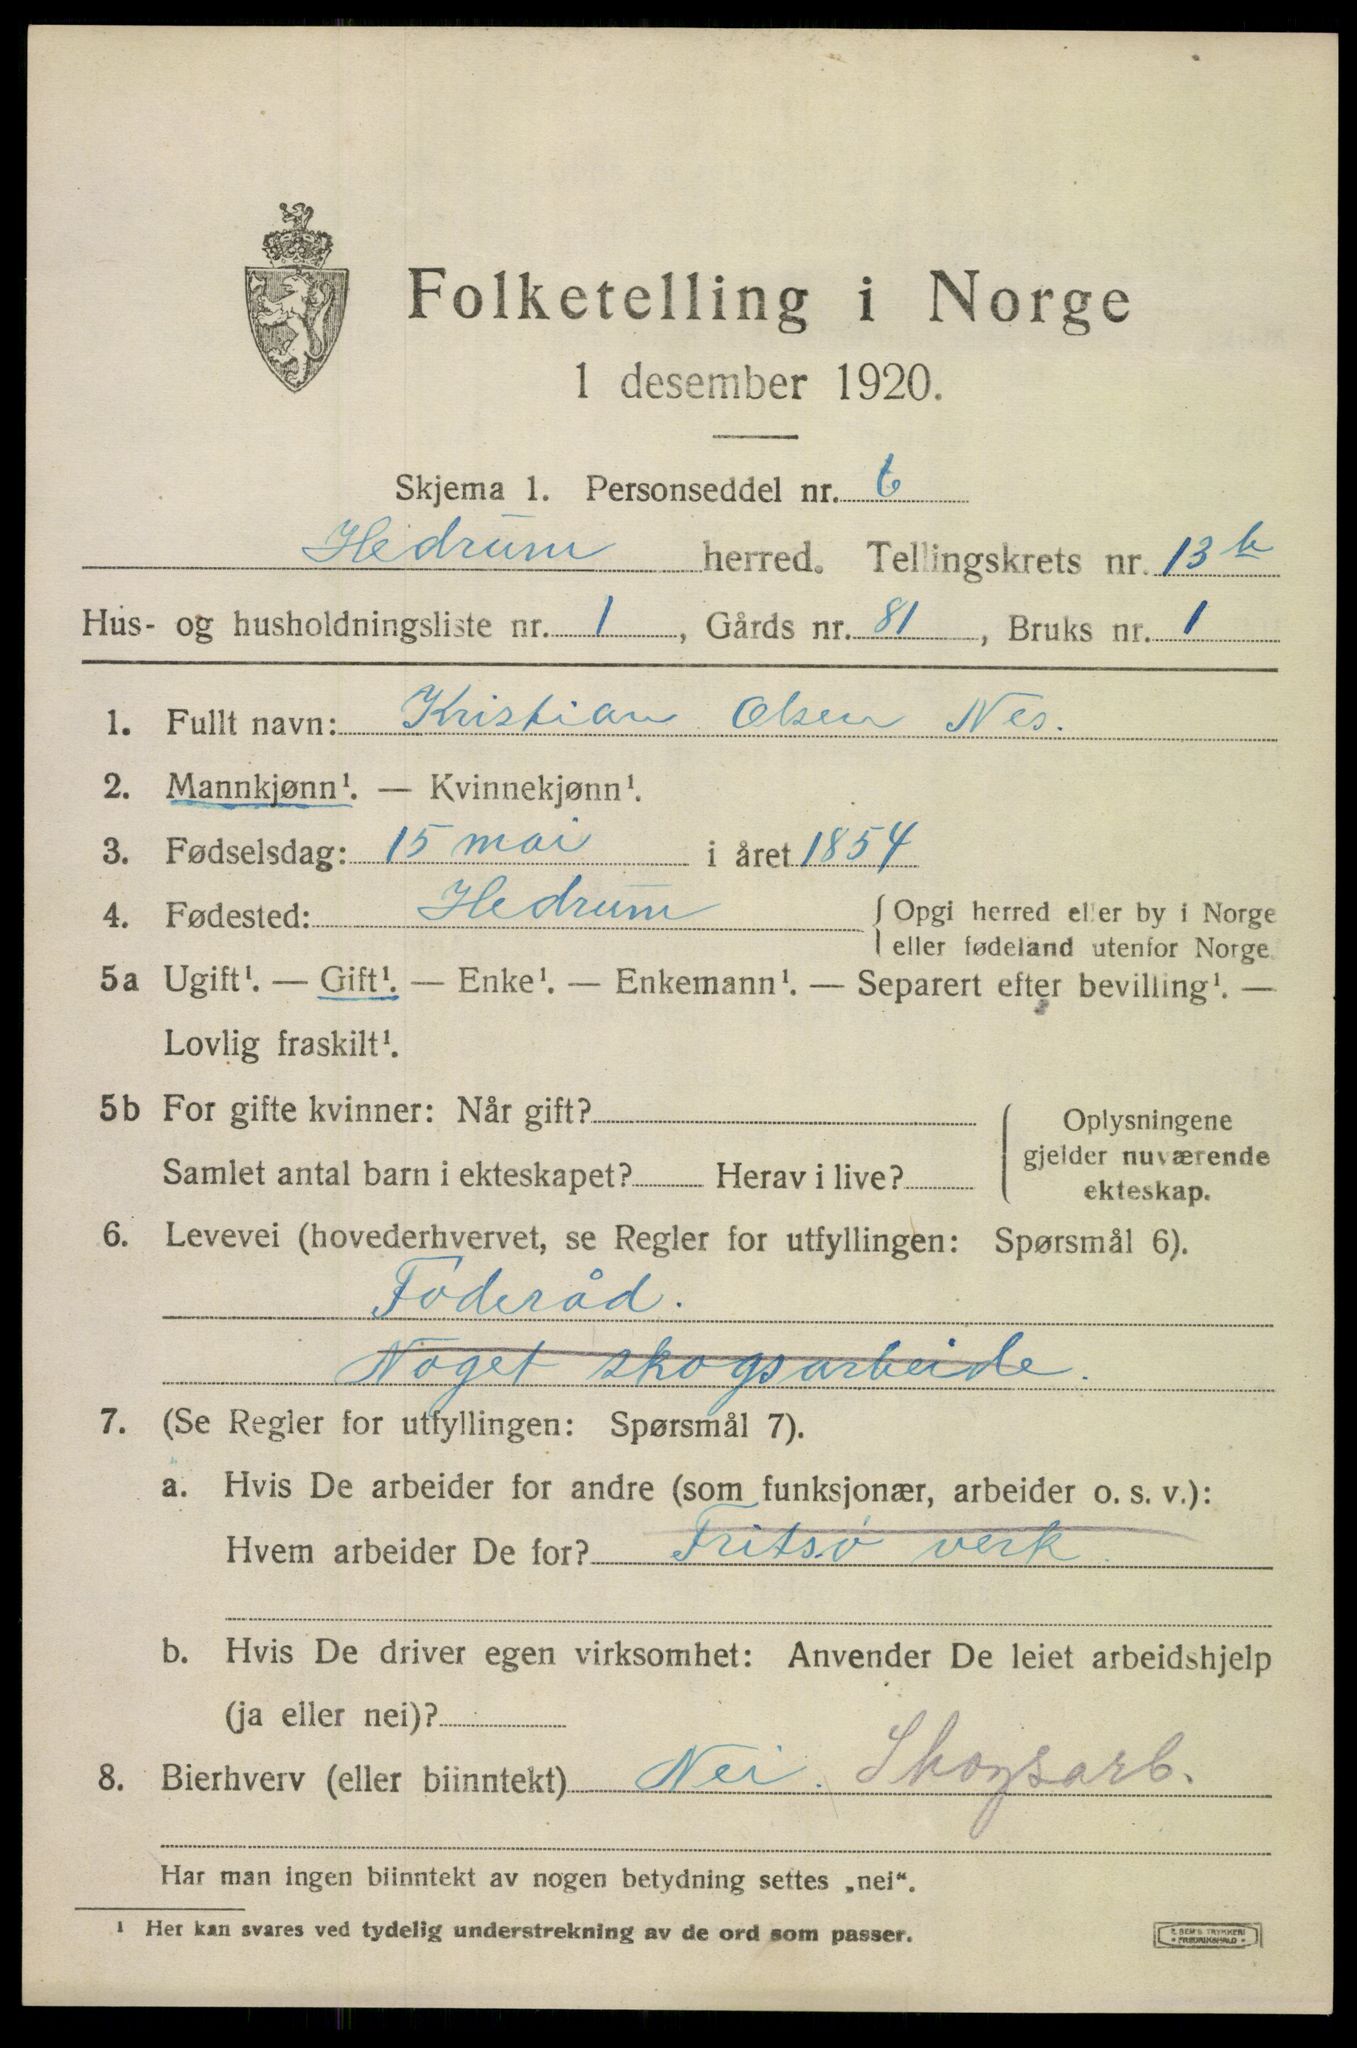 Folketelling i Norge
1 desember 1920.
Skjema 1. Personseddel nr. 6
Hedrum herred. Tellingskrets nr. 13 b
Hus- og husholdningsliste nr. 1, Gårds nr. 81, Bruks nr. 1
1. Fullt navn: Kristian Olsen Nes.
2. Mannkjønn¹. — Kvinnekjønn¹.
3. Fødselsdag: 15 mai i året 1854
4. Fødested: Hedrum { Opgi herred eller by i Norge
eller fødeland utenfor Norge
5a Ugift¹. — Gift¹. — Enke¹. — Enkemann¹. — Separert efter bevilling¹. —
Lovlig fraskilt¹.
5b For gifte kvinner: Når gift?
Samlet antal barn i ekteskapet? Herav i live?
{ Oplysningene
gjelder nuværende
ekteskap.
6. Levevei (hovederhvervet, se Regler for utfyllingen: Spørsmål 6).
Foderåd.
Noget skogsarbeide.
7. (Se Regler for utfyllingen: Spørsmål 7).
a. Hvis De arbeider for andre (som funksjonær, arbeider o. s. v.):
Hvem arbeider De for? Fritsø verk.
b. Hvis De driver egen virksomhet: Anvender De leiet arbeidshjelp
(ja eller nei)?
8. Bierhverv (eller biinntekt) Nei. Skogsarb.
Har man ingen biinntekt av nogen betydning settes „nei“.
¹ Her kan svares ved tydelig understrekning av de ord som passer.
SEM'S TRYKKERI
FREDRIKSHALD